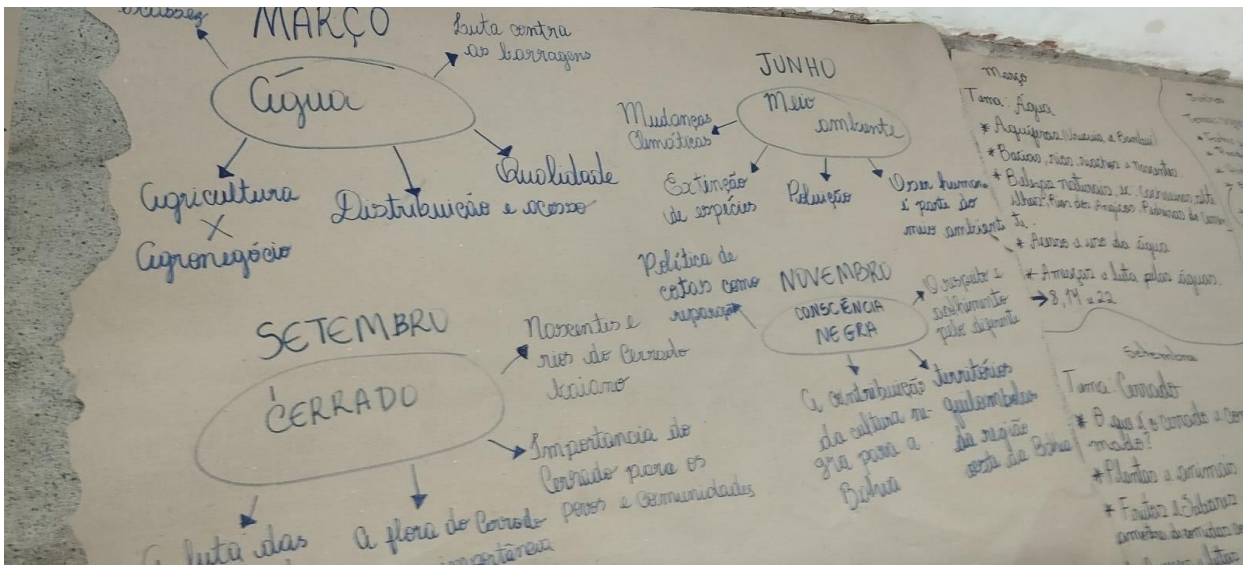 MARÇO
Água
Luta contra
as barragens
Qualidade
Distribuição e acesso
Agricultura
X
Agronegócio
JUNHO
Meio
ambiente
Mudanças
Climáticas
Extinção
de espécies
Poluição
O ser human
é parte do
meio ambient
SETEMBRO
CERRADO
Nascentes e
rios do Cerrado
baiano
Importancia do
Cerrado para os
povos e comunidades
A flora do Cerrado
importância
luta das
NOVEMBRO
CONSCÊNCIA
NEGRA
Política de
cotas como
reparação
O respeito e
acolhimento
pelo diferente
A contribuição
da cultura ne-
gra para a
Bahia
territórios
quilombolas
da região
oeste da Bahia
Março
Tema: Água
* Aquíferos (Urucuia e Bambuí)
* Bacias, rios, riachos e nascentes
* Belezas naturais
* Acesso e uso da água
* Ameaças e luta pelas águas.
→ 8, 14 e 22
Setembro
Tema: Cerrado
* O que é o cerrado e co
mado?
* Plantas e animais
* Frutos e Sabores